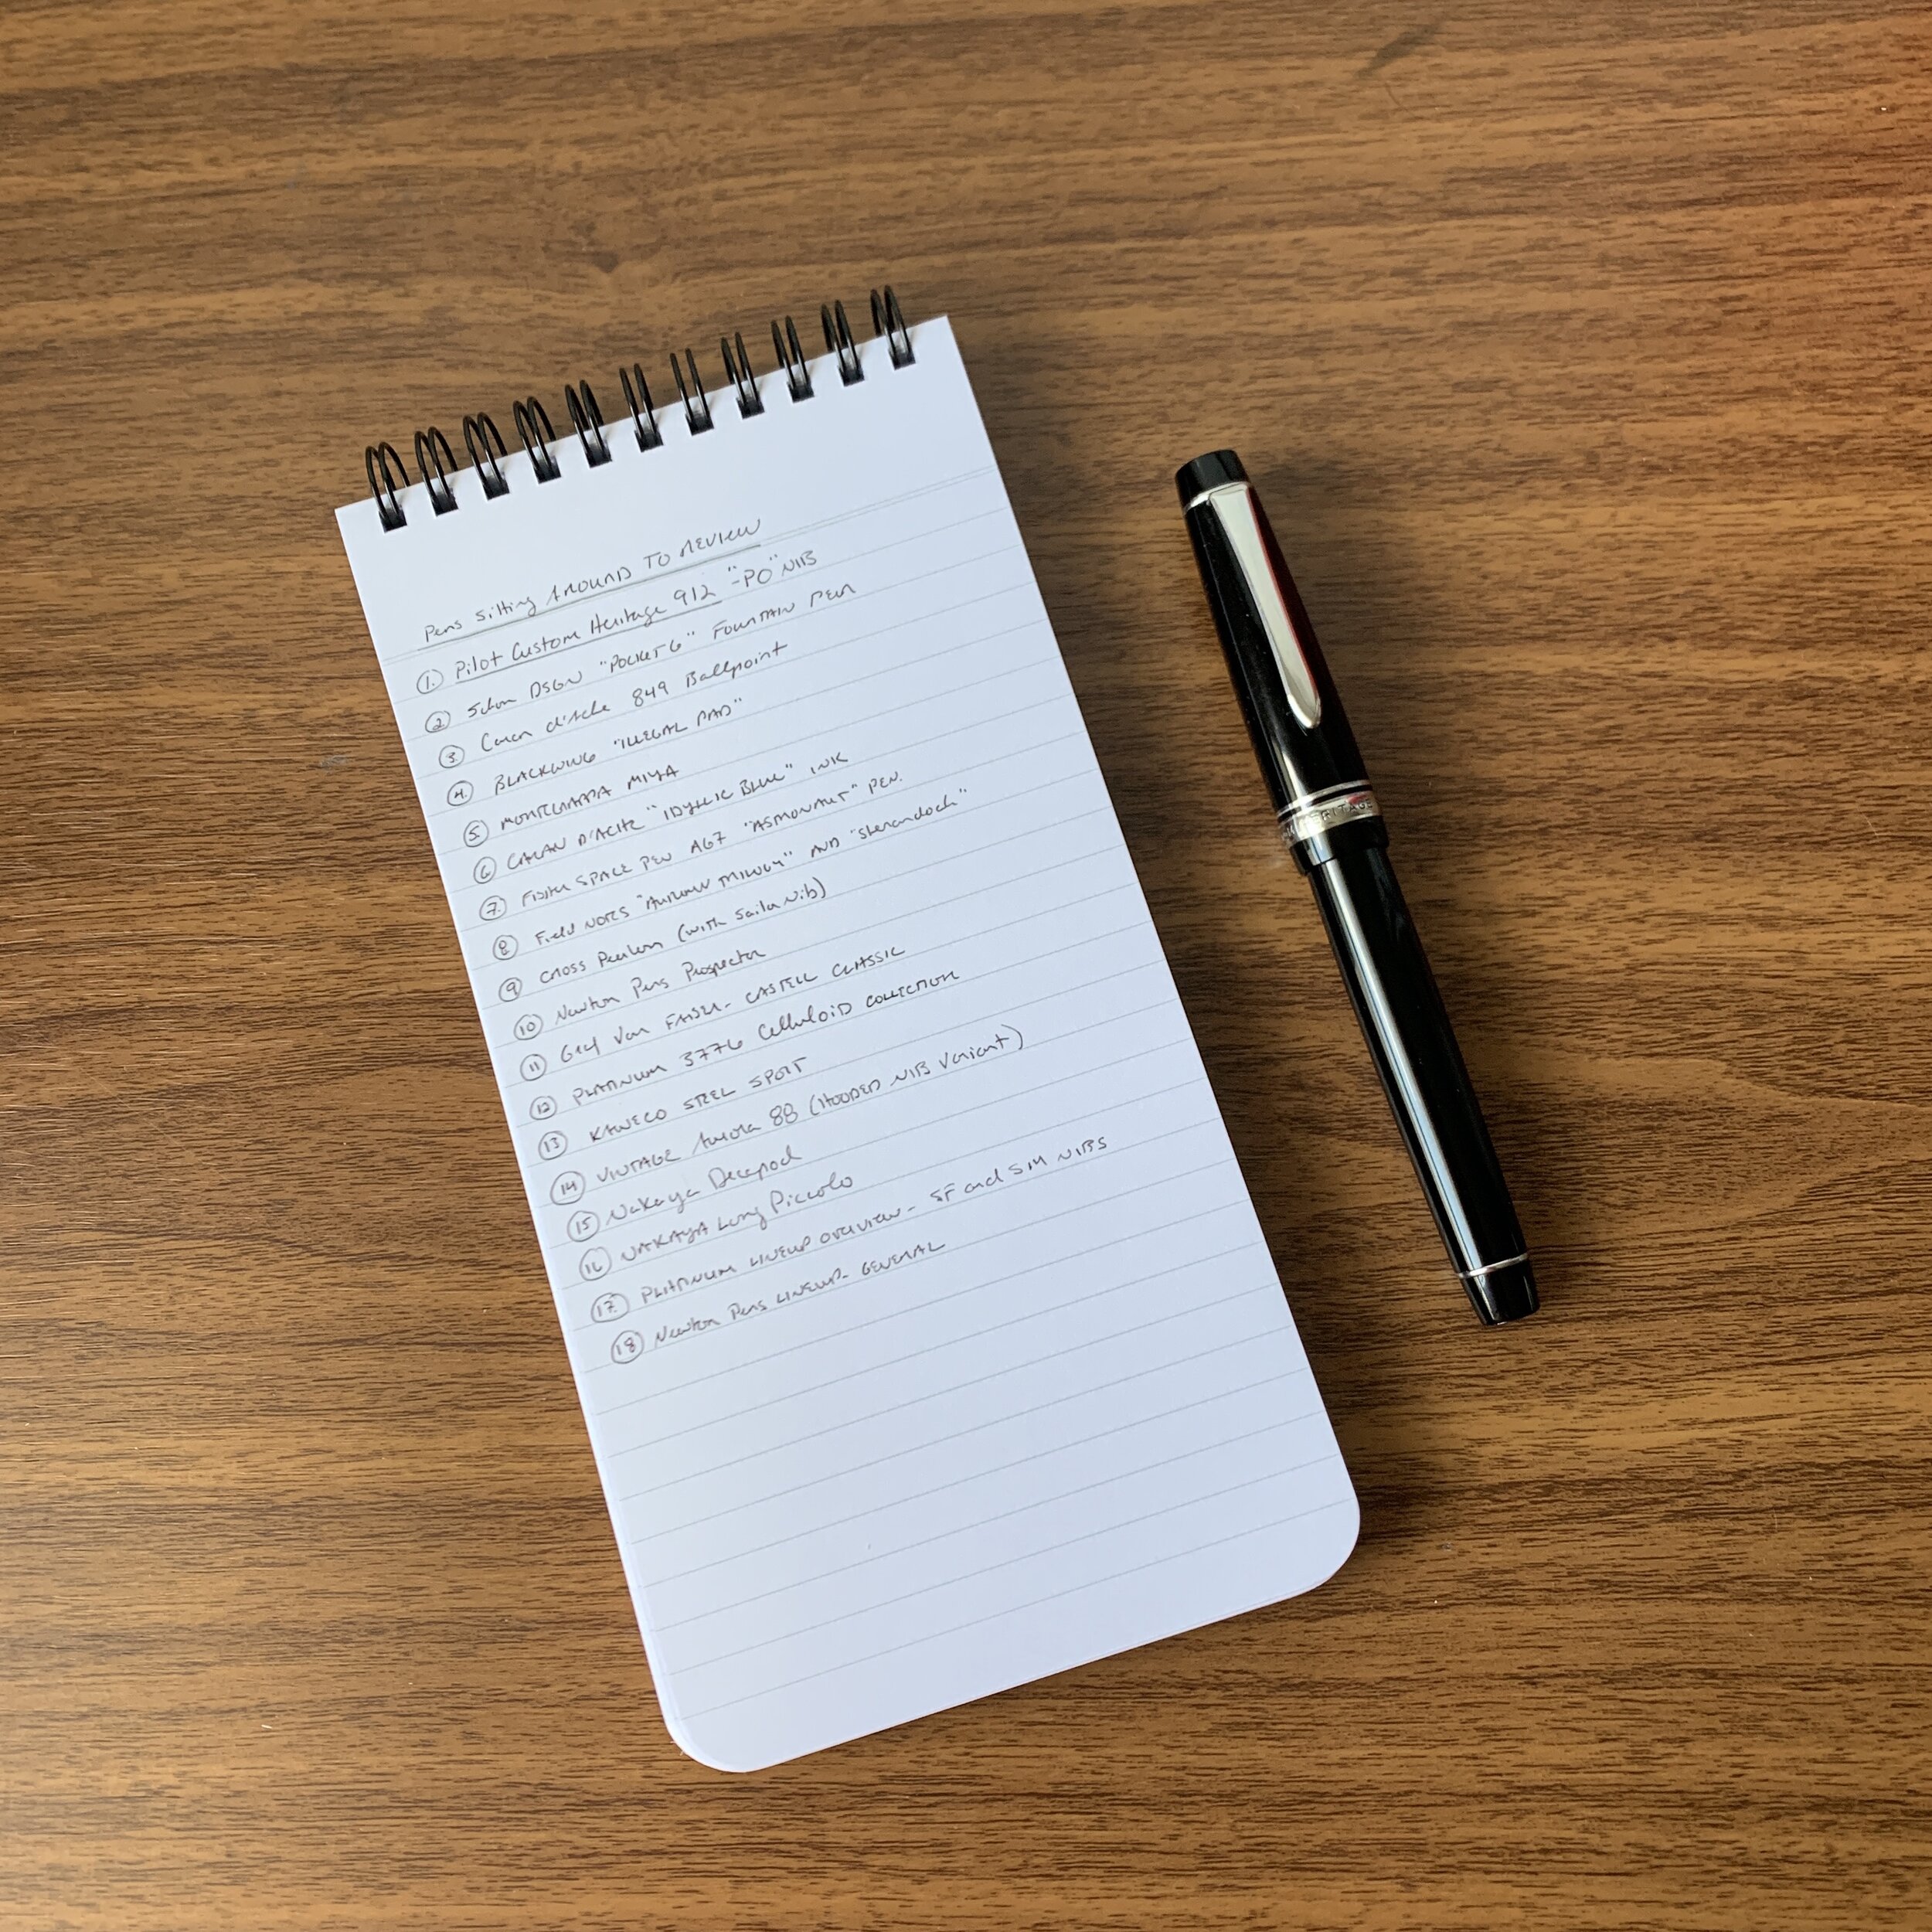 Pens Sitting Around to Review
1. Pilot Custom Heritage 912 - "PO" NIB
2 Schon DSGN "Pocket 6" Fountain Pen
3. Caran d'Ache 849 Ballpoint
4. BLACKWING "ILLEGAL PAD"
5 MONTEGRAPPA MIYA
6 CARAN D'ACHE "IDYLLIC BLUE" INK
7. FISHER SPACE PEN AG7 "ASTRONAUT" PEN.
8 Field NOTES "AUTUMN TRILOGY" AND "Shenandoah"
9 CROSS Peerless (with Sailor Nib)
10 Newton Pens Prospector
11 Graf Von FABER-CASTELL CLASSIC
12 PLATINUM 3776 Celluloid COLLECTION
13 KAWECO STEEL SPORT
14 VINTAGE Aurora 88 (HOODED NIB Variant)
15 Nakaya Decapod
16 NAKAYA Long Piccolo
17. PLATINUM LINEUP OVERVIEW - SF and SM NIBS
18 Newton Pens LINEUP - GENERAL
HERITAGE